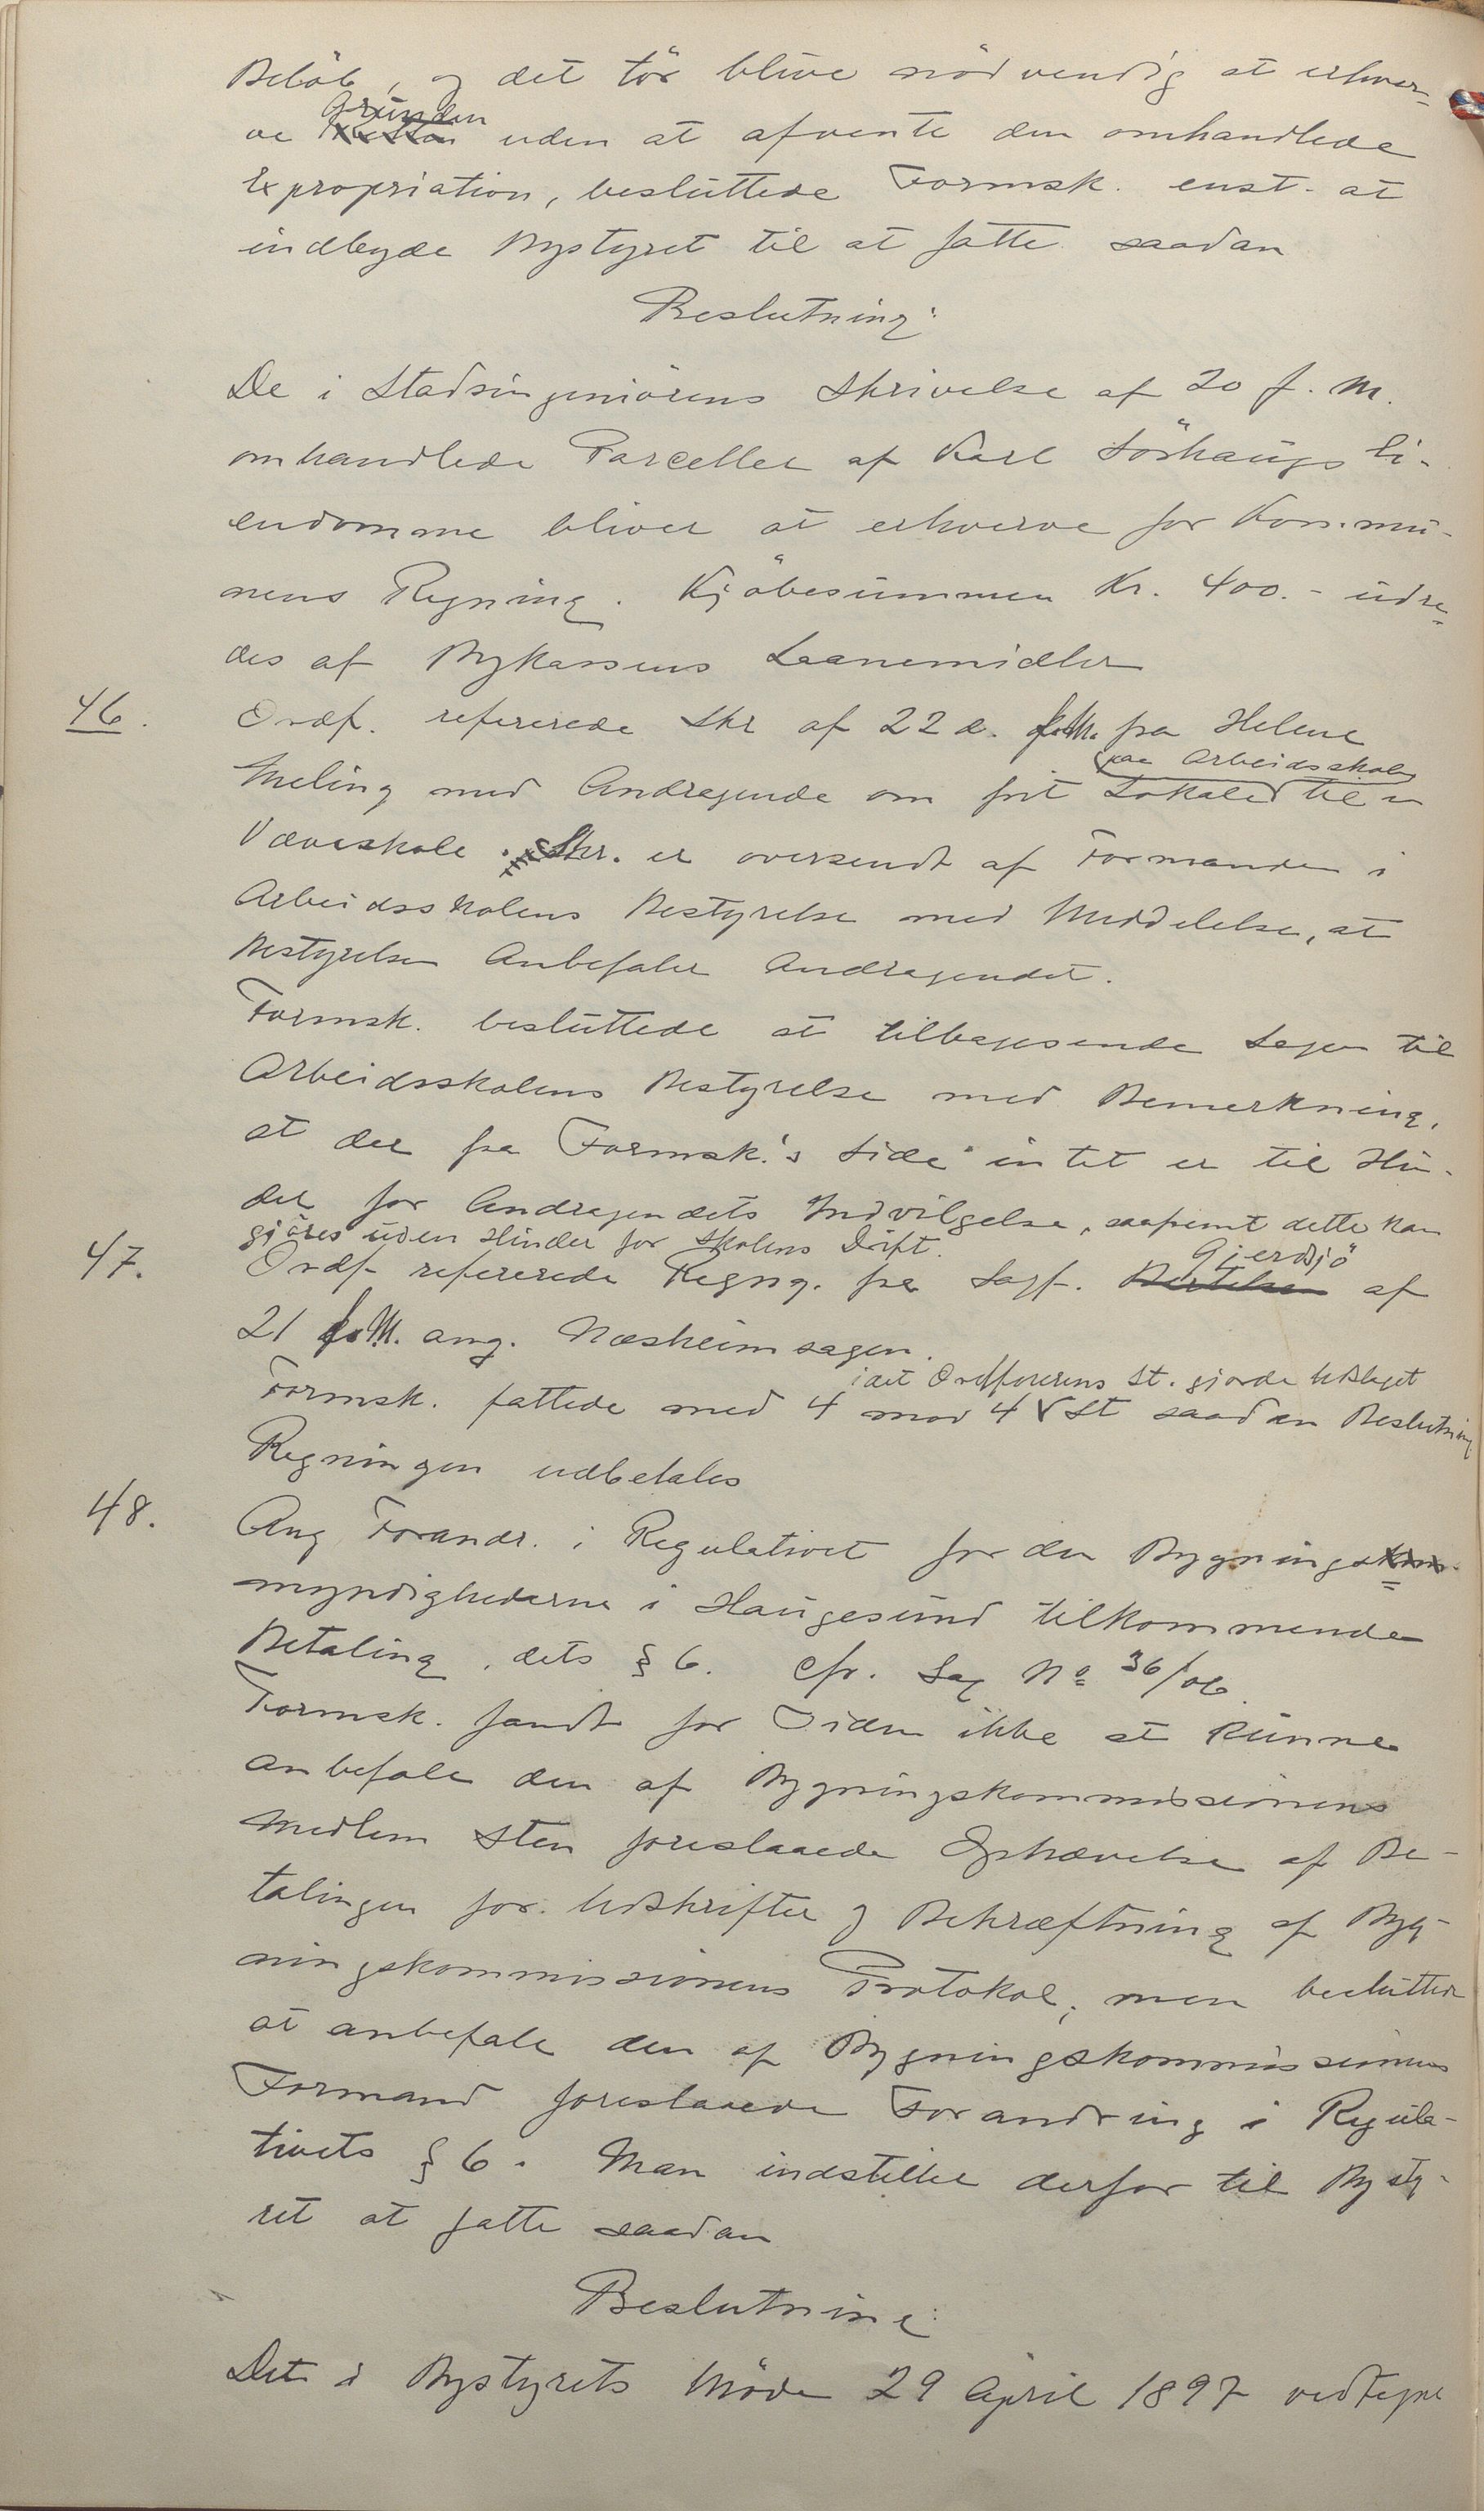 Beløb, og det tør blive nødvendig at erhver-
ve Grunden uden at afvente den omhandlede
Expropriation, besluttede Formsk. enst. at
indbyde Bystyret til at fatte saadan
Beslutning:
De i Stadsingeniørens Skrivelse af 20 f. M.
omhandlede Parceller af Karl Sørhaugs Ei-
endomme bliver at erhverve for Kommu-
nens Regning. Kjøbesummen Kr. 400.- udre-
des af Bykassens Laanemidler
46. Ordf. refererede Skr af 22 d. f.M. fra Helene
paa Arbeidsskolen
Meling med Andragende om frit Lokale til en
Væveskole. Skr. er oversendt af Formanden i
Arbeidsskolens Bestyrelse med Meddelelse, at
Bestyrelsen Anbefaler Andragendet.
Formsk. besluttede at tilbagesende Sagen til
Arbeidsskolens Bestyrelse med Bemerkning,
at der fra Formsk.'s Side intet er til Hin-
der for Andragendets Indvilgelse, saafremt dette kan
gjøres uden Hinder for Skolens Drift.
47. Ordf refererede Regng. fra Sagf. Gjerdsjø af
21 f.M. ang. Næsheimsagen.
idet Ordførerens St. gjorde Udslaget
Formsk. fattede med 4 mod 4 St saadan Beslutning
Regningen udbetales
48. Ang Forandr. i Regulativet for den Bygnings-
myndighederne i Haugesund tilkommende
Betaling, dets § 6. Cfr. Sag No 36/06.
Formsk. fandt for Tiden ikke at kunne
anbefale den af Bygningskommissionens
Medlem Sten foreslaaede Ophævelse af Be-
talingen for Udskrifter og Bekræftning af Byg-
ningskommissionens Protokol; men besluttede
at anbefale den af Bygningskommissionens
Formand foreslaaede Forandring i Regula-
tivets § 6. Man indstiller derfor til Bysty-
ret at fatte saadan
Beslutning:
Det i Bystyrets Møde 29 April 1897 vedtagne